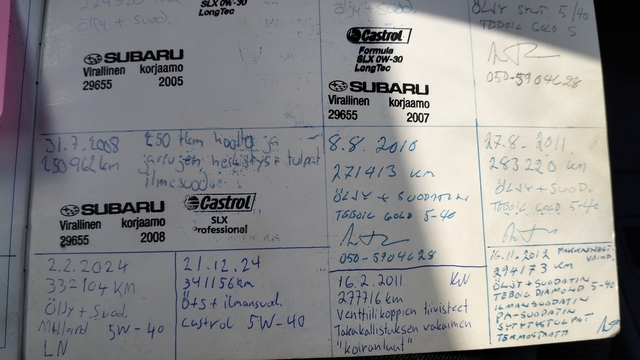 SLX 0W-30
LongTec
SUBARU
Virallinen korjaamo
29655 2005
Castrol
Formula
SLX 0W-30
LongTec
SUBARU
Virallinen korjaamo
29655 2007
5/40
050-5904628
31.7.2008 250 tkm huolto ja
250962 km jarrujen herkistys + tulpat
ilmasuod.
SUBARU
Virallinen korjaamo
29655 2008
Castrol
SLX
Professional
8.8. 2010
271413 km
ÖLJY + SUODATIN
TEBOIL GOLD 5-40
050-5904628
27.8. 2011
283220 km
ÖLJY + SUOD.
TEBOIL GOLD 5-40
2.2.2024
332104 KM
Öljy + Suod.
Midland 5W-40
LN
21.12.24
341156km
Ö+S + ilmansuod.
Castrol 5W-40
16.2.2011 KN
277716km
Venttiilikoppien tiivisteet
Takakallistuksen vakaimen
"koiranluut"
16.11.2012
294173 km
ÖLJYT + SUODATIN
TEBOIL DIAMOND 5-40
ILMANSUODATIN
PA-SUODATIN
SYTYTYSTULPAT
TERMOSTAATTI